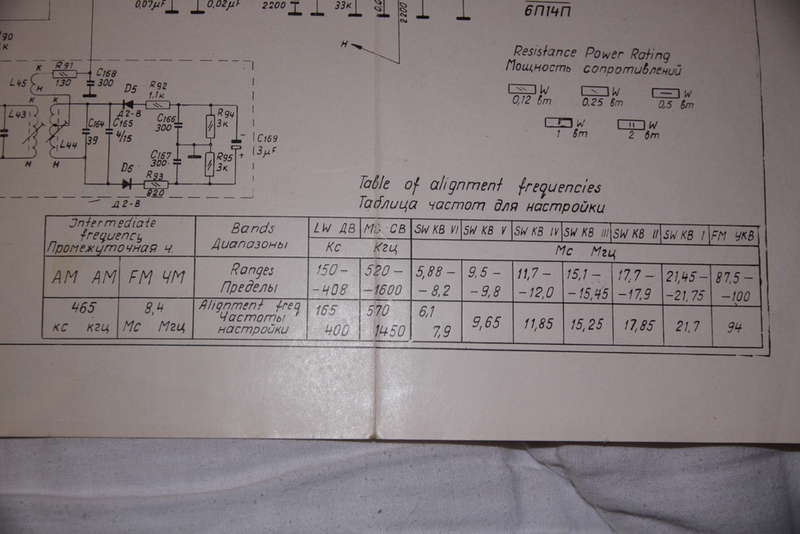 0,07µF
0,02µF
2200
33к
2200
6П14П
R90
Н
Resistance Power Rating
Мощность сопротивлений
W
0,12 вт
W
0,25 вт
W
0,5 вт
W
1 вт
W
2 вт
К
R91
130
C168
300
L45
Н
D5
Д2-В
R92
1,1к
К
К
L43
L44
Н
Н
C164
39
C165
4/15
C166
300
R94
3к
C169
3µF
-
+
C167
300
R95
3к
D6
R93
820
Д2-В
Table of alignment frequencies
Таблица частот для настройки
Intermediate
frequency
Промежуточная ч.
Bands
Диапазоны
LW ДВ
СВ
SW КВ VI
SW КВ V
SW КВ IV
SW КВ III
SW КВ II
SW КВ I
FM УКВ
Кс
Кгц
Мс Мгц
АМ АМ
FM ЧМ
Ranges
Пределы
150–
–408
520–
–1600
5,88–
–8,2
9,5–
–9,8
11,7–
–12,0
15,1–
–15,45
17,7–
–17,9
21,45–
–21,75
87,5–
–100
465
кс кгц
8,4
Мс Мгц
Alignment freq
Частоты
настройки
165
400
570
1450
6,1
7,9
9,65
11,85
15,25
17,85
21,7
94